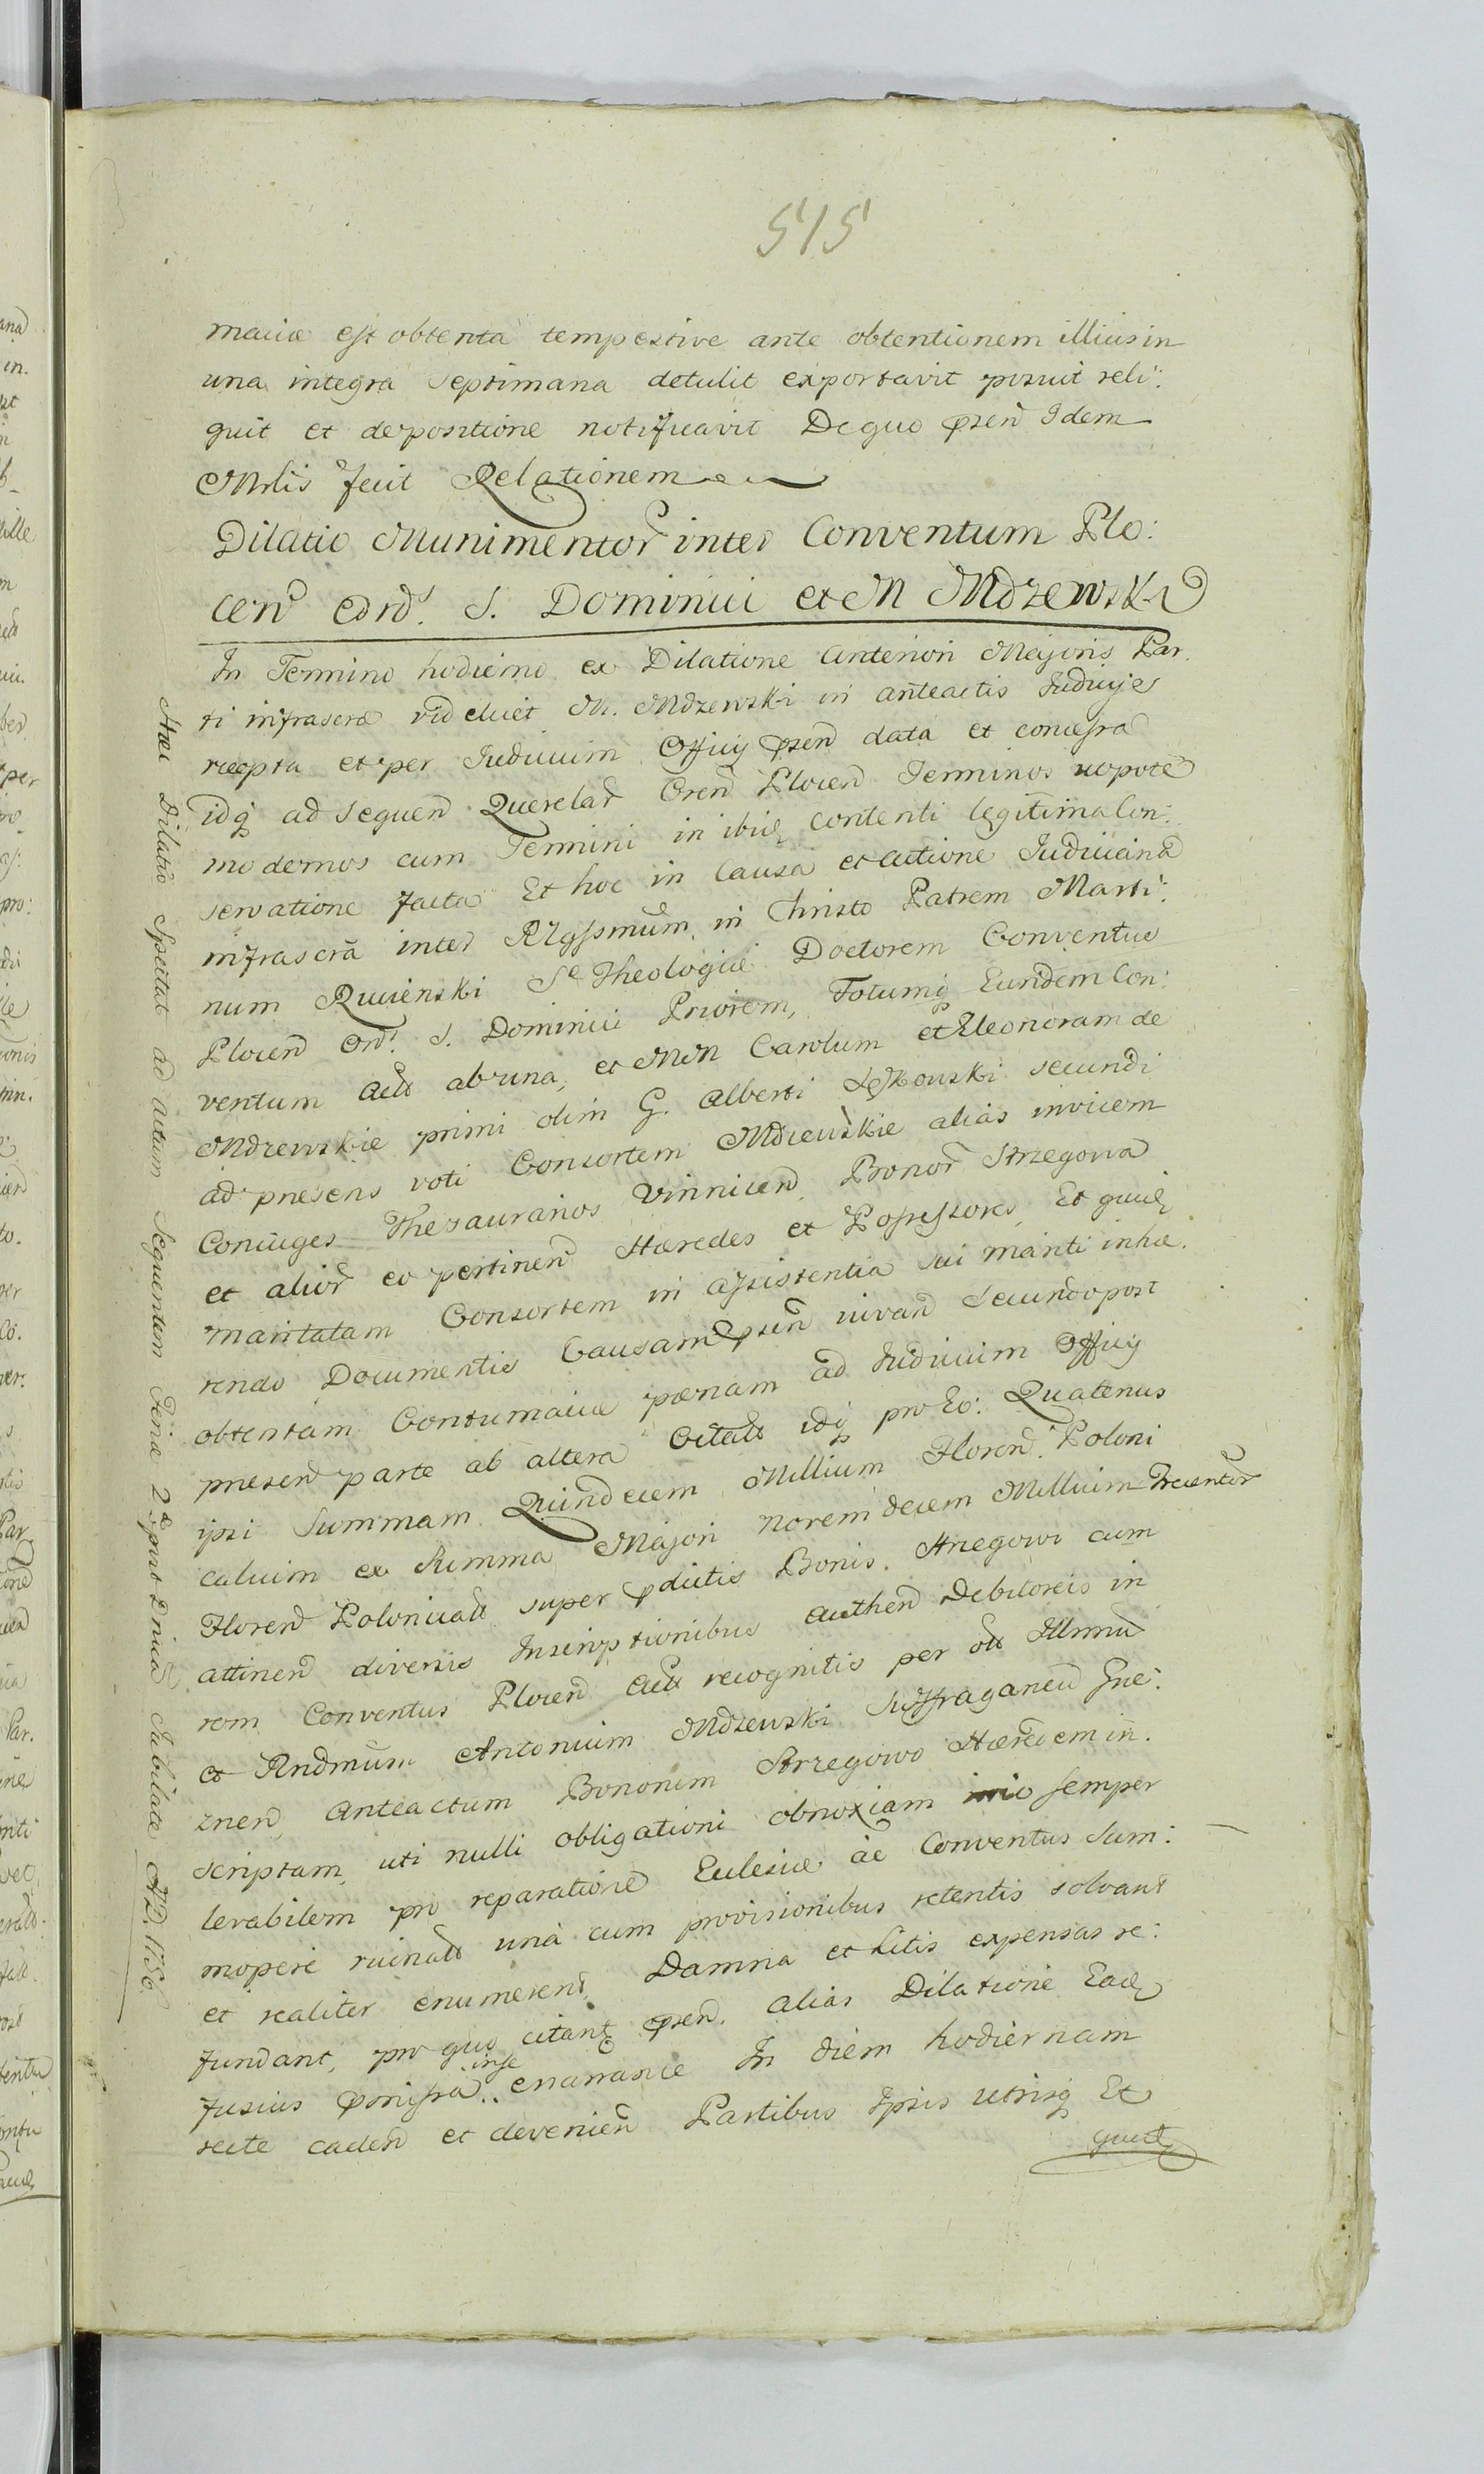 515
maciæ est obtenta tempestive ante obtentionem illius in
una integra septimana detulit exportavit posuit reli:
quit et depositione notificavit De quo pſen Idem
Mrlis fecit Relationem
Dilatio Munimentor inter Conventum Plo:
cen Ord. S. Dominici et M Mdzewski
In Termino hodierno ex Dilatione Anteriori Majoris Par
ti infrascræ vid eluet M. Mdzewski in anteactis Judicijs
recepta et per Judicium Officij pſen data et conceſsa
idq ad sequen Querelar Oren Plocen Terminos uopote
modernos cum Termini in ibiq contenti legitima Con:
servatione facta Et hoc in Causa et actione Judician
infrascra inter Rlgſsmum in Christo Patrem Marti:
num Rucienski Sæ Theologiæ Doctorem Conventus
Plocen Ord. S. Dominici Priorem, Totumq Eundem Con:
ventum Act ab una, et MM Carolum et Eleonoram de
Mdzewskie primi olim G. Alberti Leſkowski secundi
ad præsens voti Consortem Mdzewskie alias invicem
Coniuges Thesaurarios Vinnicen Bonor Strzegowa
et alior eo pertinen Hæredes et Poſseſsores, Et quidq
maritatam Consortem in aſsistentia sui mariti inhæ.
rendo Documentis Causam pſen iuvan Secundo post
obtentam Contumaciæ pænam ad Judicium Officij
presen parte ab altera Citatt idq pro Eo: Quatenus
ipsi Summam Quindecem Millium Floren. Poloni
calium ex Summa Majori Novemdecem Millium Trecentor
Floren Polonicall super pdictis Bonis. Strzegowo cum
attinen diversis Inscriptionibus authen Debitoreis in
rem Conventus Plocen Act recognitis per olt Illmum
et Rndmum Antonium Mdzewski Suffraganeu Gne:
znen, Anteactum Bonorum Strzegowo Hæredem in.
scriptam, uti nulli obligationi obnoxiam imo semper
levabilem pro reparatione Ecclesiæ ac Conventus sum:
mopere ruinatt una cum provisionibus retentis solvant
et realiter enumerent, Damna et Litis expensas re:
fundant, pro quo citantq pſen. alias Dilatione Eadq
fusius pmiſsa inſe enarrante In diem hodiernam
recte caden et devenien Partibus Ipsis utrisq Et
quidq
Hæc Dilatio Spectat ad Actum Sequentem Feriæ 2dæ post Dnicā Jubilate AD. 1786